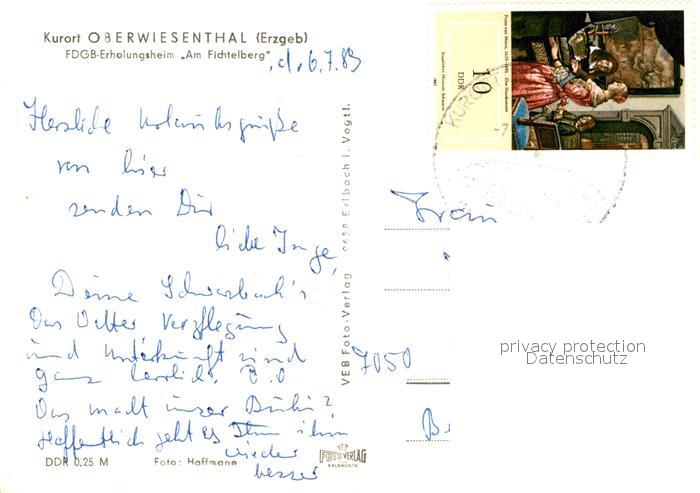 Kurort OBERWIESENTHAL (Erzgeb)
FDGB-Erholungsheim „Am Fichtelberg"
, d. 6.7.83
Herzliche Urlaubsgrüße
von hier
senden Dir
liebe Inge,
Deine Schwarzbach's
Das Wetter Verpflegung
und Unterkunft sind
ganz herrlich.
Das macht unser Bubi?
Hoffentlich geht es ihm
wieder
besser
DDR 0,25 M
Foto: Hoffmann
VEB Foto-Verlag 9658 Erlbach i. Vogtl.
VEB
FOTO VERLAG
ERLBACH/V.
10
DDR
Frans van Mieris, 1635-1681, Das Hauskonzert
Staatliches Museum Schwerin
KURORT
Frau
7050
privacy protection
Datenschutz